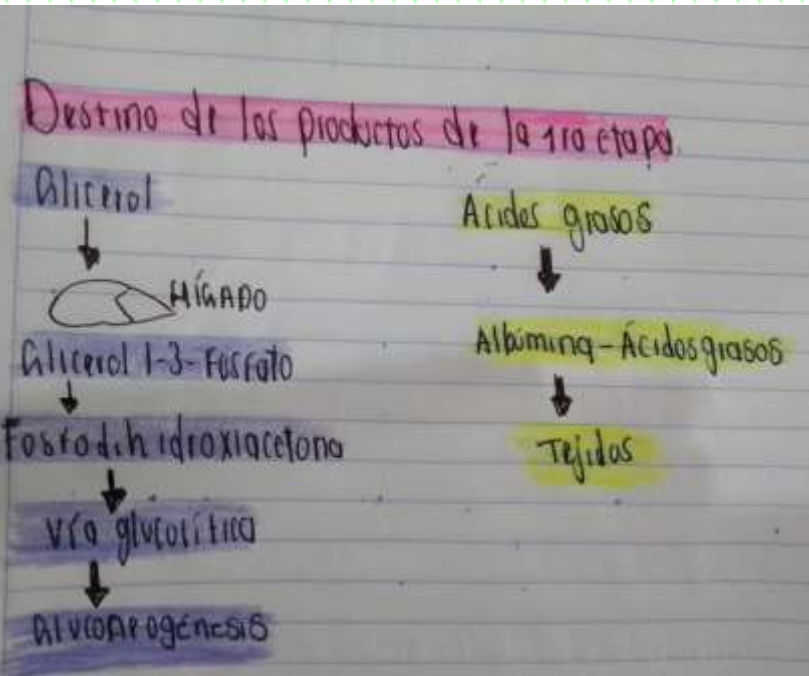 Destino de los productos de la 1ra etapa
Glicerol
HÍGADO
Glicerol 1-3-Fosfato
Fosfodihidroxiacetona
Vía glucolítica
Gluconeogénesis
Ácidos grasos
Albúmina-Ácidos grasos
Tejidos